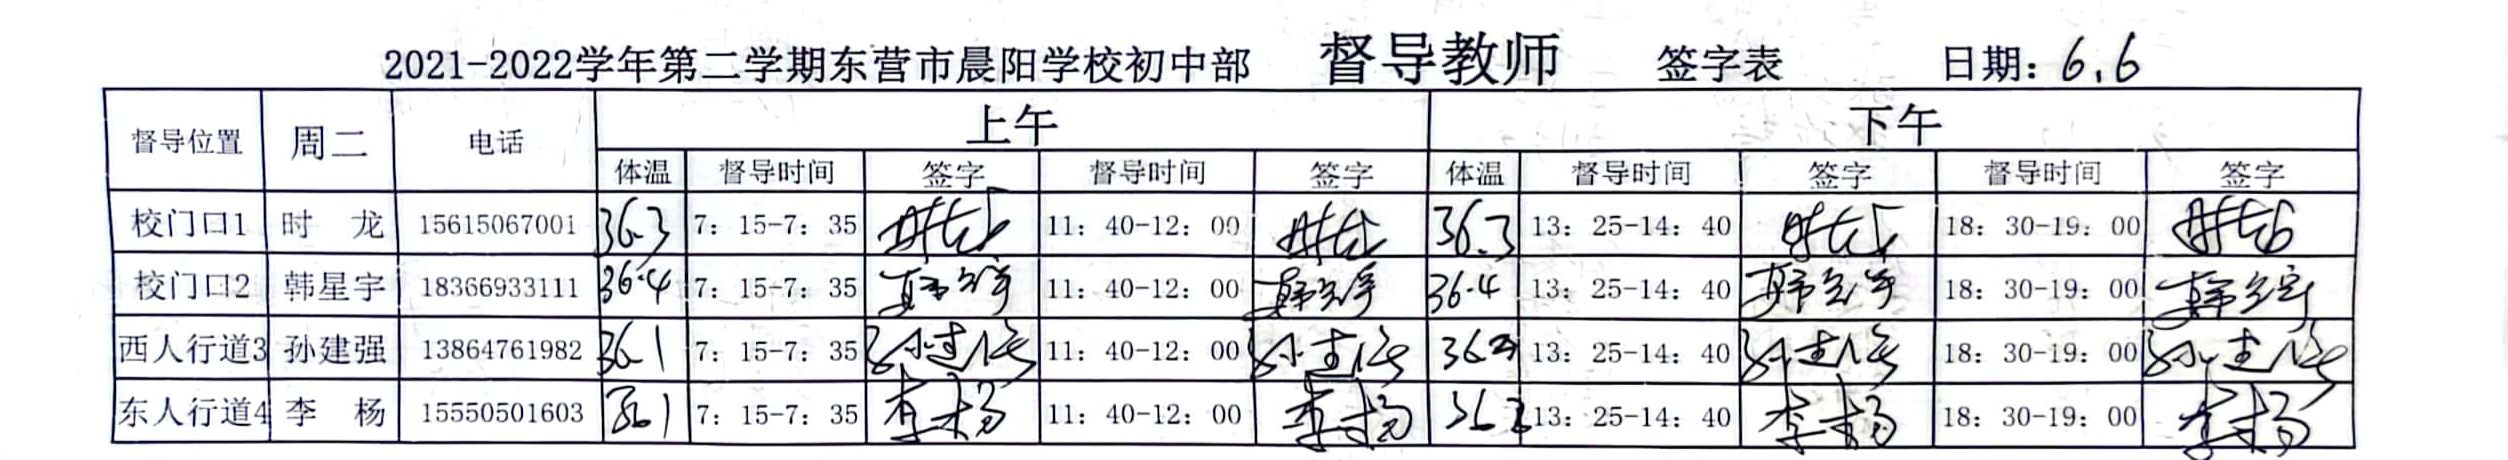 2021-2022学年第二学期东营市晨阳学校初中部 督导教师 签字表 日期: 6.6
督导位置 周二 电话 上午 下午
体温 督导时间 签字 督导时间 签字 体温 督导时间 签字 督导时间 签字
校门口1 时 龙 15615067001 36.3 7: 15-7: 35 时龙 11: 40-12: 00 时龙 36.3 13: 25-14: 40 时龙 18: 30-19: 00 时龙
校门口2 韩星宇 18366933111 36.4 7: 15-7: 35 韩星宇 11: 40-12: 00 韩星宇 36.4 13: 25-14: 40 韩星宇 18: 30-19: 00 韩星宇
西人行道3 孙建强 13864761982 36.1 7: 15-7: 35 孙建强 11: 40-12: 00 孙建强 13: 25-14: 40 孙建强 18: 30-19: 00 孙建强
东人行道4 李 杨 15550501603 36.1 7: 15-7: 35 李杨 11: 40-12: 00 李杨 36.2 13: 25-14: 40 李杨 18: 30-19: 00 李杨